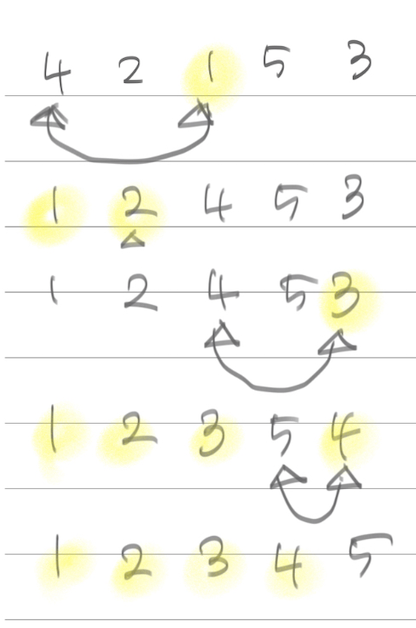 4 2 1 5 3
1 2 4 5 3
1 2 4 5 3
1 2 3 5 4
1 2 3 4 5